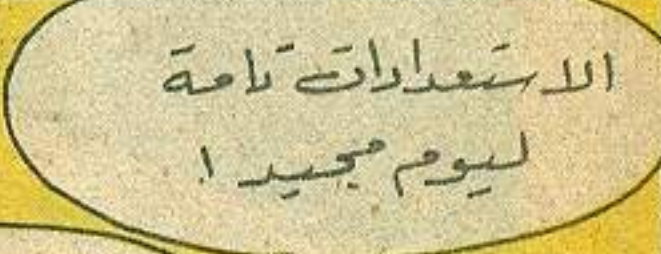 الاستعدادات تامة
ليوم مجيد !